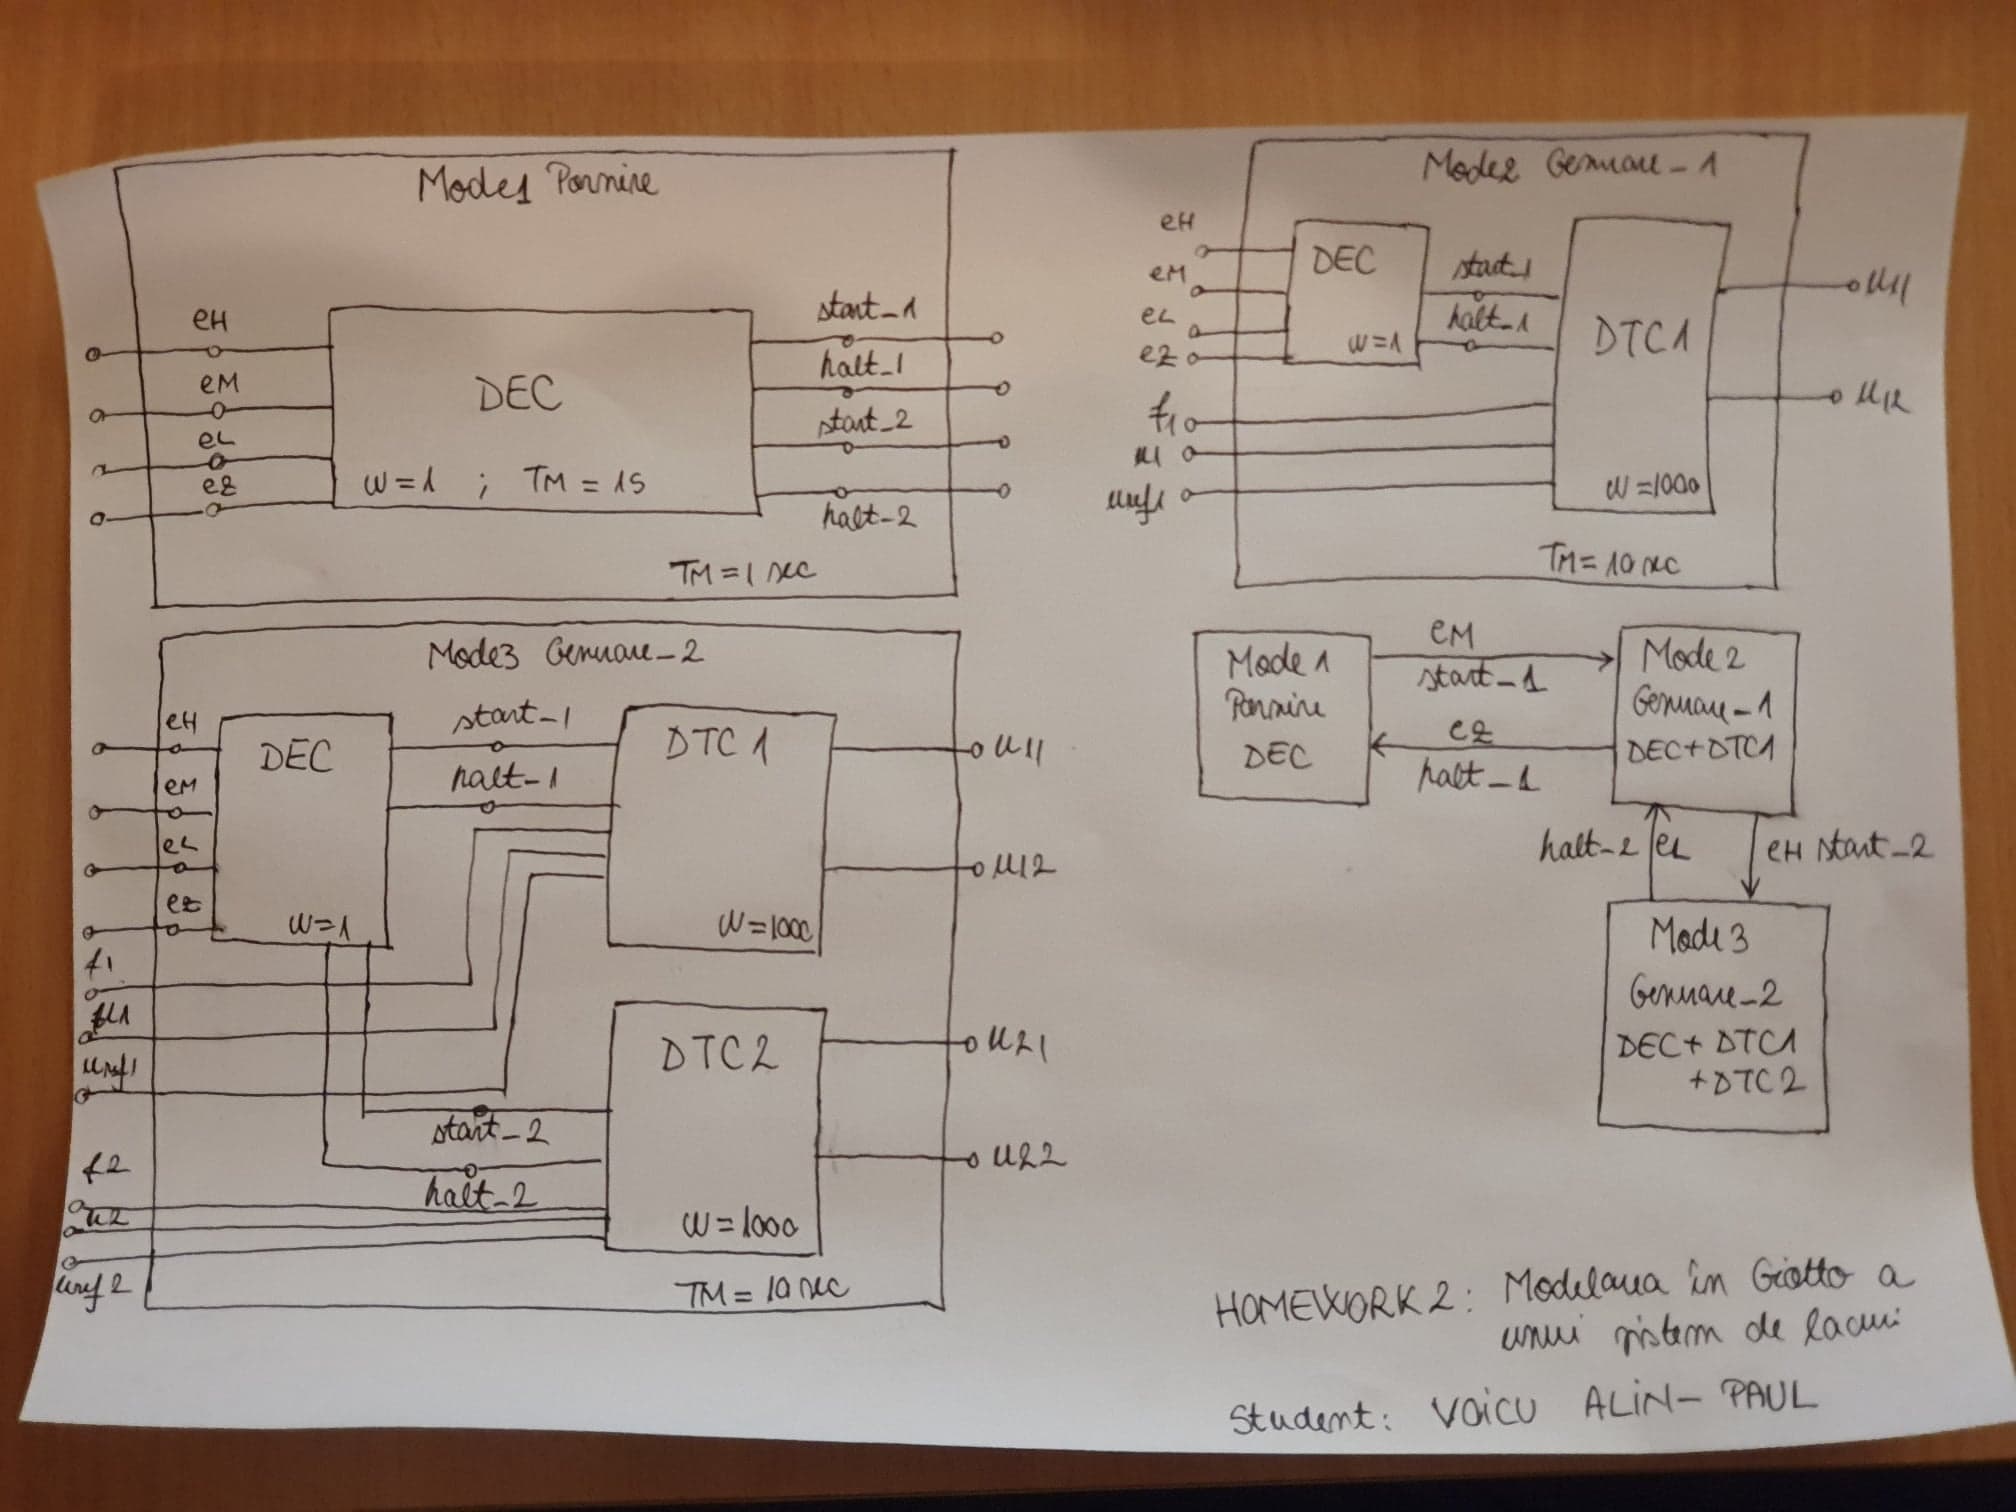 Mode1 Pornire
eH
eM
eL
eZ
DEC
W=1 ; TM = 1S
start_1
halt_1
start_2
halt-2
TM=1 sec
Mode2 Genuare_1
eH
eM
eL
eZ
f1
u1
uref1
DEC
W=1
start_1
halt_1
DTC1
W=1000
u11
u12
TM=10 sec
Mode3 Genuare_2
eH
eM
eL
eZ
f1
u1
uref1
f2
u2
uref2
DEC
W=1
start_1
halt_1
DTC1
W=1000
u11
u12
start_2
halt_2
DTC2
W=1000
u21
u22
TM=10 sec
Mode1
Pornire
DEC
eM
start_1
eZ
halt_1
Mode2
Genuare_1
DEC+DTC1
halt-2 eL
eH start_2
Mode3
Genuare_2
DEC+ DTC1
+DTC2
HOMEWORK 2: Modelarea în Giotto a
unui sistem de lacuri
Student: VOICU ALIN-PAUL